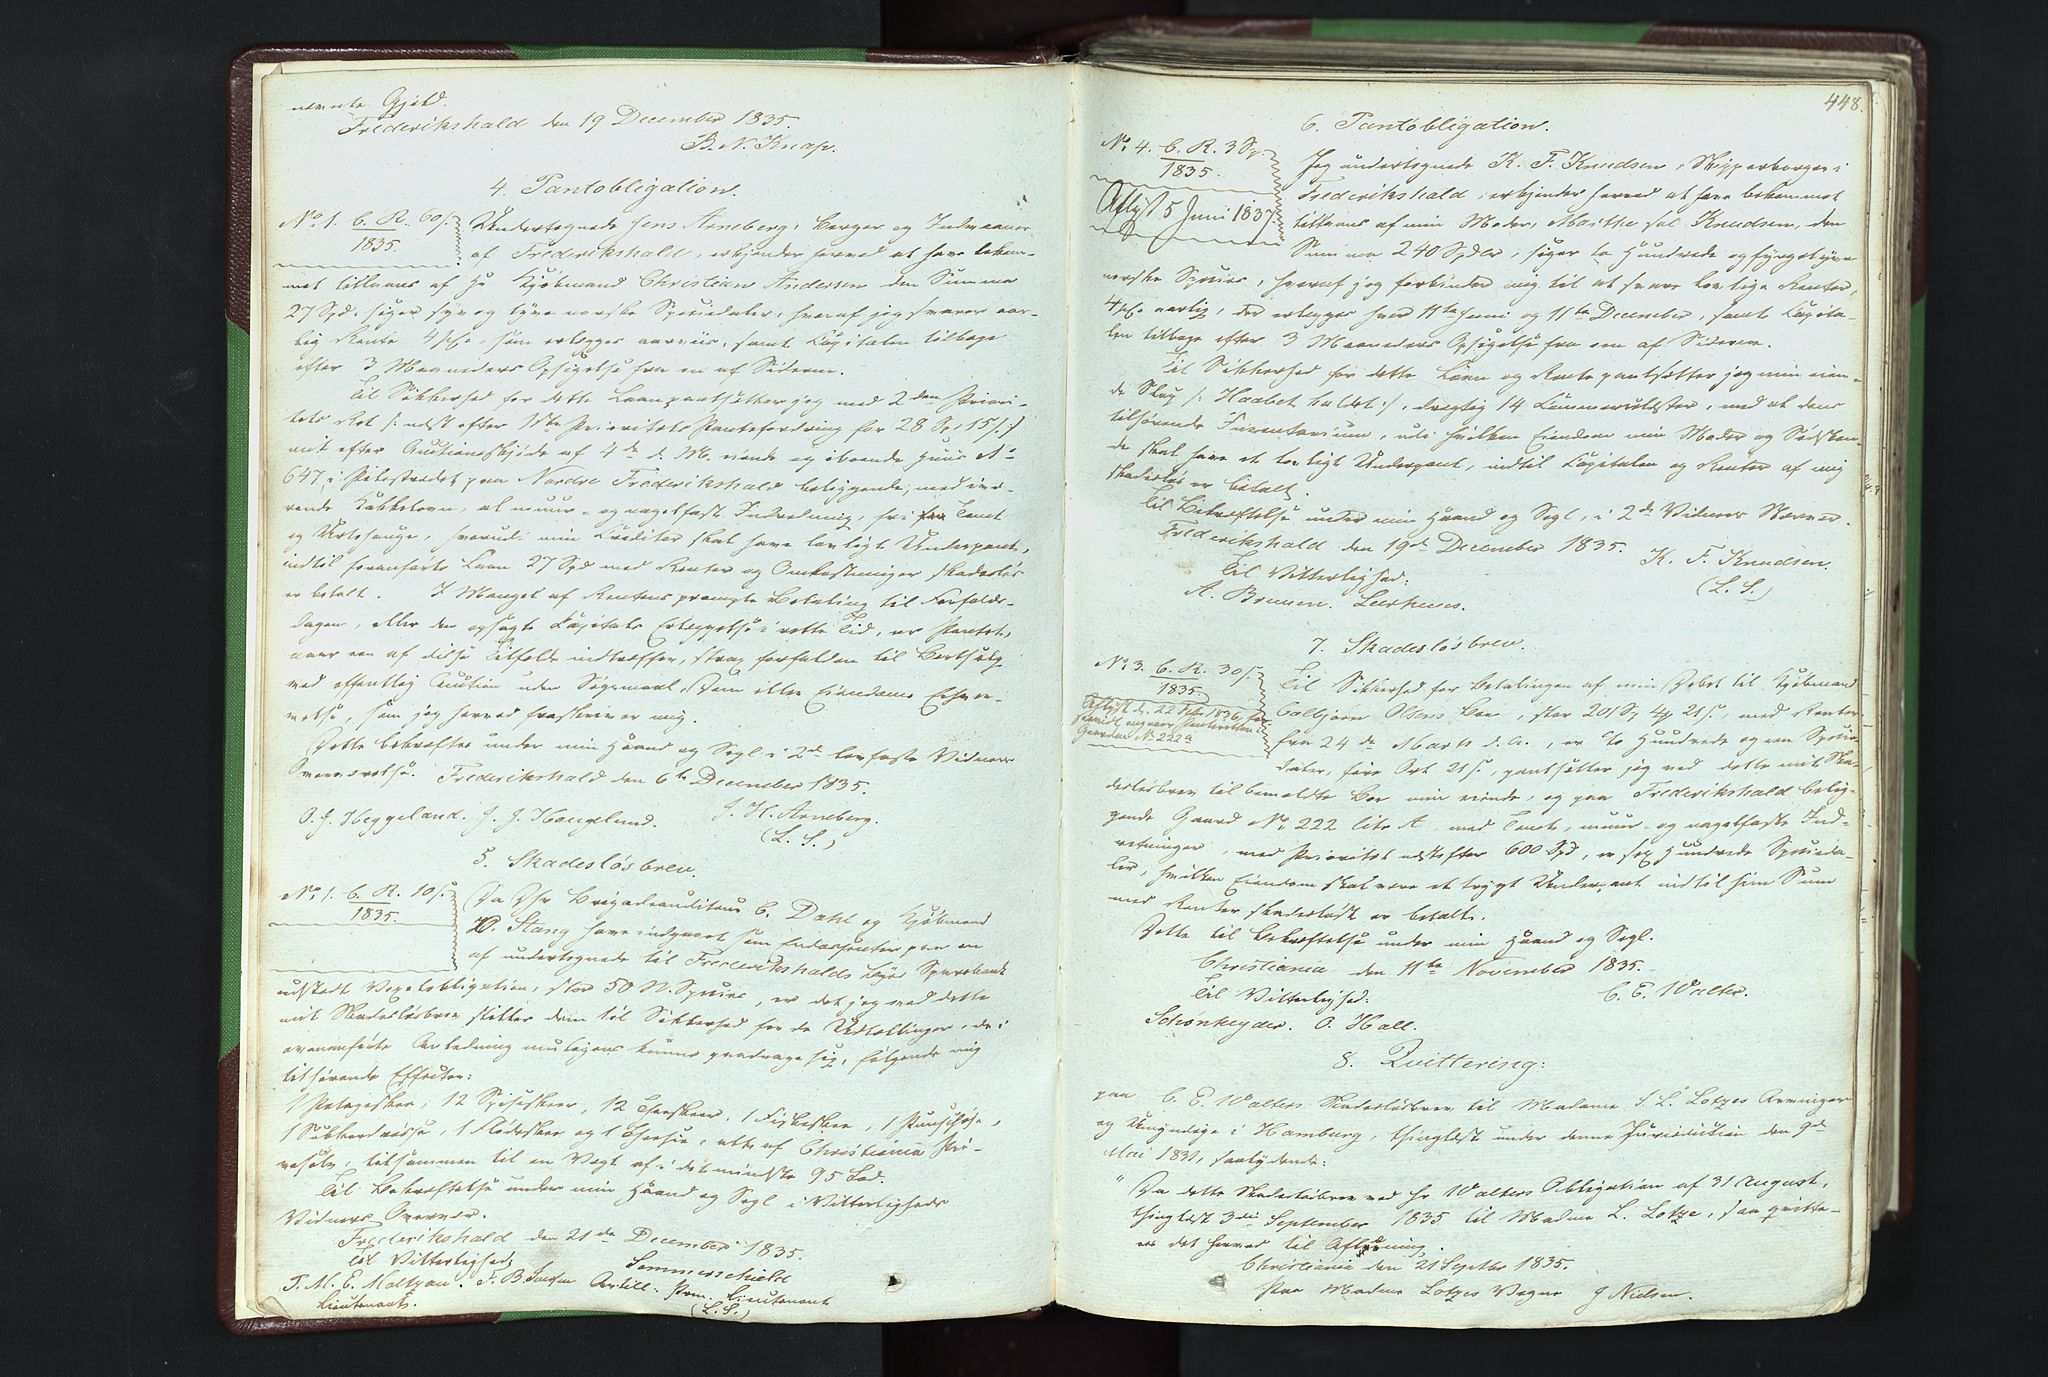 nævnte Gjæld.
Frederikshald den 19 December 1835.
B. N. Knap.
4. Pantobligation.
No 1. C. R. 60 s.
1835.
Undertegnede Jens Arneberg, Borger og Indvaaner
af Frederikshald, erkjender herved at have bekom-
met tillaans af Hr Kjøbmand Christian Andersen den Summa
27 Spd. siger syv og tyve norske Speciedaler, hvoraf jeg svarer aar-
lig Rente 4 pCt, som erlægges aarviis, samt Capitalen tilbage
efter 3 Maaneders Opsigelse fra en af Siderne.
Til Sikkerhed for dette Laan pantsætter jeg med 2den Priori-
tets Ret /: næst efter 1ste Prioritets Pantefordring for 28 Sp. 15 s :/
mit efter Auctionsskjøde af 4de d. M. eiende og iboende Huus No
647, i Pilestrædet paa Nordre Frederikshald beliggende, med væ-
rende Kakkelovn, al muur- og nagelfast Indredning, frie Tomt
og Urtehauge, hvorudi min Creditor skal have lovligt Underpant,
indtil foranførte Laan 27 Spd med Renter og Omkostninger skadesløs
er betalt. I Mangel af Rentens prompte Betaling til Forfalds-
dagen, eller den opsagte Capitals Erlæggelse i rette Tid, er Pantet,
naar een af disse Tilfælde indtræffer, strax forfalden til Bortsalg
ved offentlig Auction uden Søgsmaal, Dom eller Eiendoms Erhver-
velse, som jeg herved fraskriver mig.
Dette bekræftes under min Haand og Segl i 2de lovfaste Vidners
Overværelse. Frederikshald den 6te December 1835.
O. J. Heggeland. J. J. Hougelund. J. H. Arneberg.
(L. S.)
5. Skadesløsbrev.
No 1. C. R. 10 s.
1835.
Da Dhr Brigadeauditeur C. Dahl og Kjøbmand
Stang have indgaaet som Endossenter paa en
af undertegnede til Frederikshalds Byes Sparebank
udstedt Vexelobligation, stor 50 N. Species, er det jeg ved dette
mit Skadesløsbrev stiller dem til Sikkerhed for de Udtællinger, de i
ovenanførte Anledning muligens kunne paadrage sig, følgende mig
tilhørende Effecter:
1 Potageskee, 12 Spiseskeer, 12 Theeskeer, 1 Fiskeskee, 1 Punschøse,
1 Sukkerdaase, 1 Flødeskee og 1 Theesie, alt af Christiania Prø-
vesølv, tilsammen til en Vægt af i det mindste 95 Lod.
Til Bekræftelse under min Haand og Segl i Vitterligheds
Vidners Overvær.
Frederikshald den 21de December 1835.
Til Vitterlighed: Sommerschield
T. M. E. Moltzau. F. B. Artill. Prm. Lieutenant
Lieutenants. (L. S.)
448.
6. Pantobligation.
No 4. C. R. 3 Sp.
1835.
Aflyst 5 Juni 1837.
Jeg undertegnede K. F. Knudsen, Skipperborger i
Frederikshald, erkjender herved at have bekommet
tillaans af min Moder, Marthe sal. Knudsen, den
Summa 240 Spdlr, siger to Hundrede og fyrgetyve
norske Species, hvoraf jeg forbinder mig til at svare lovlige Renter,
4 pCt. aarlig, der erlægges hver 11te Juni og 11te December, samt Capita-
len tilbage efter 3 Maaneders Opsigelse fra een af Siderne.
Til Sikkerhed for dette Laan og Rente pantsætter jeg min eien-
de Slup /: Haabet kaldet :/, drægtig 14 Commercelæster, med alt dens
tilhørende Inventarium, udi hvilken Eiendom min Moder og Sødsken-
de skal have et lovligt Underpant, indtil Capitalen og Renter af mig
skadesløs er betalt.
Til Bekræftelse under min Haand og Segl, i 2de Vidners Nærvær.
Frederikshald den 19de December 1835. K. F. Knudsen.
Til Vitterlighed: (L. S.)
A. Bruusen.
7. Skadesløsbrev.
No 3. C. R. 30 s.
1835.
Aflyst d. 22 Feb. 1836, for
Gaarden No 222a
Til Sikkerhed for Betalingen af min Debet til Kjøbmand
Colbjørn Olsens Boe, stor 201 Sp 4 21 s, med Renter
fra 24de Marts d. A., er to Hundrede og een Specie-
daler, fire Ort 21 s., pantsætter jeg ved dette mit Ska-
desløsbrev til bemeldte Boe min eiende, og paa Frederikshald belig-
gende Gaard No 222 litr A, med Tomt, muur- og nagelfaste Ind-
retninger, med Prioritet næstefter 600 Spd, er sex Hundrede Specieda-
ler, hvilken Eiendom skal være et trygt Underpant indtil hin Sum
med Renter skadesløst er betalt.
Dette til Bekræftelse under min Haand og Segl.
Christiania den 11te November 1835.
Til Vitterlighed: C. E. Walter.
Schönheyder. O. Hall.
8. Quittering:
paa C. E. Walters Skadesløsbrev til Madame S. L. Lotzes Arvinger
og Umyndige i Hamburg, thinglæst under denne Jurisdiction den 9de
Mai 1831, saalydende:
"Da dette Skadesløsbrev ved Hr Walters Obligation af 31 August,
thinglæst 3die September 1835 til Madme L. Lotze, saa qvitte-
res det herved til Aflæsning.
Christiania den 21 Septbr 1835.
Paa Madme Lotzes Vegne J Nielsen.